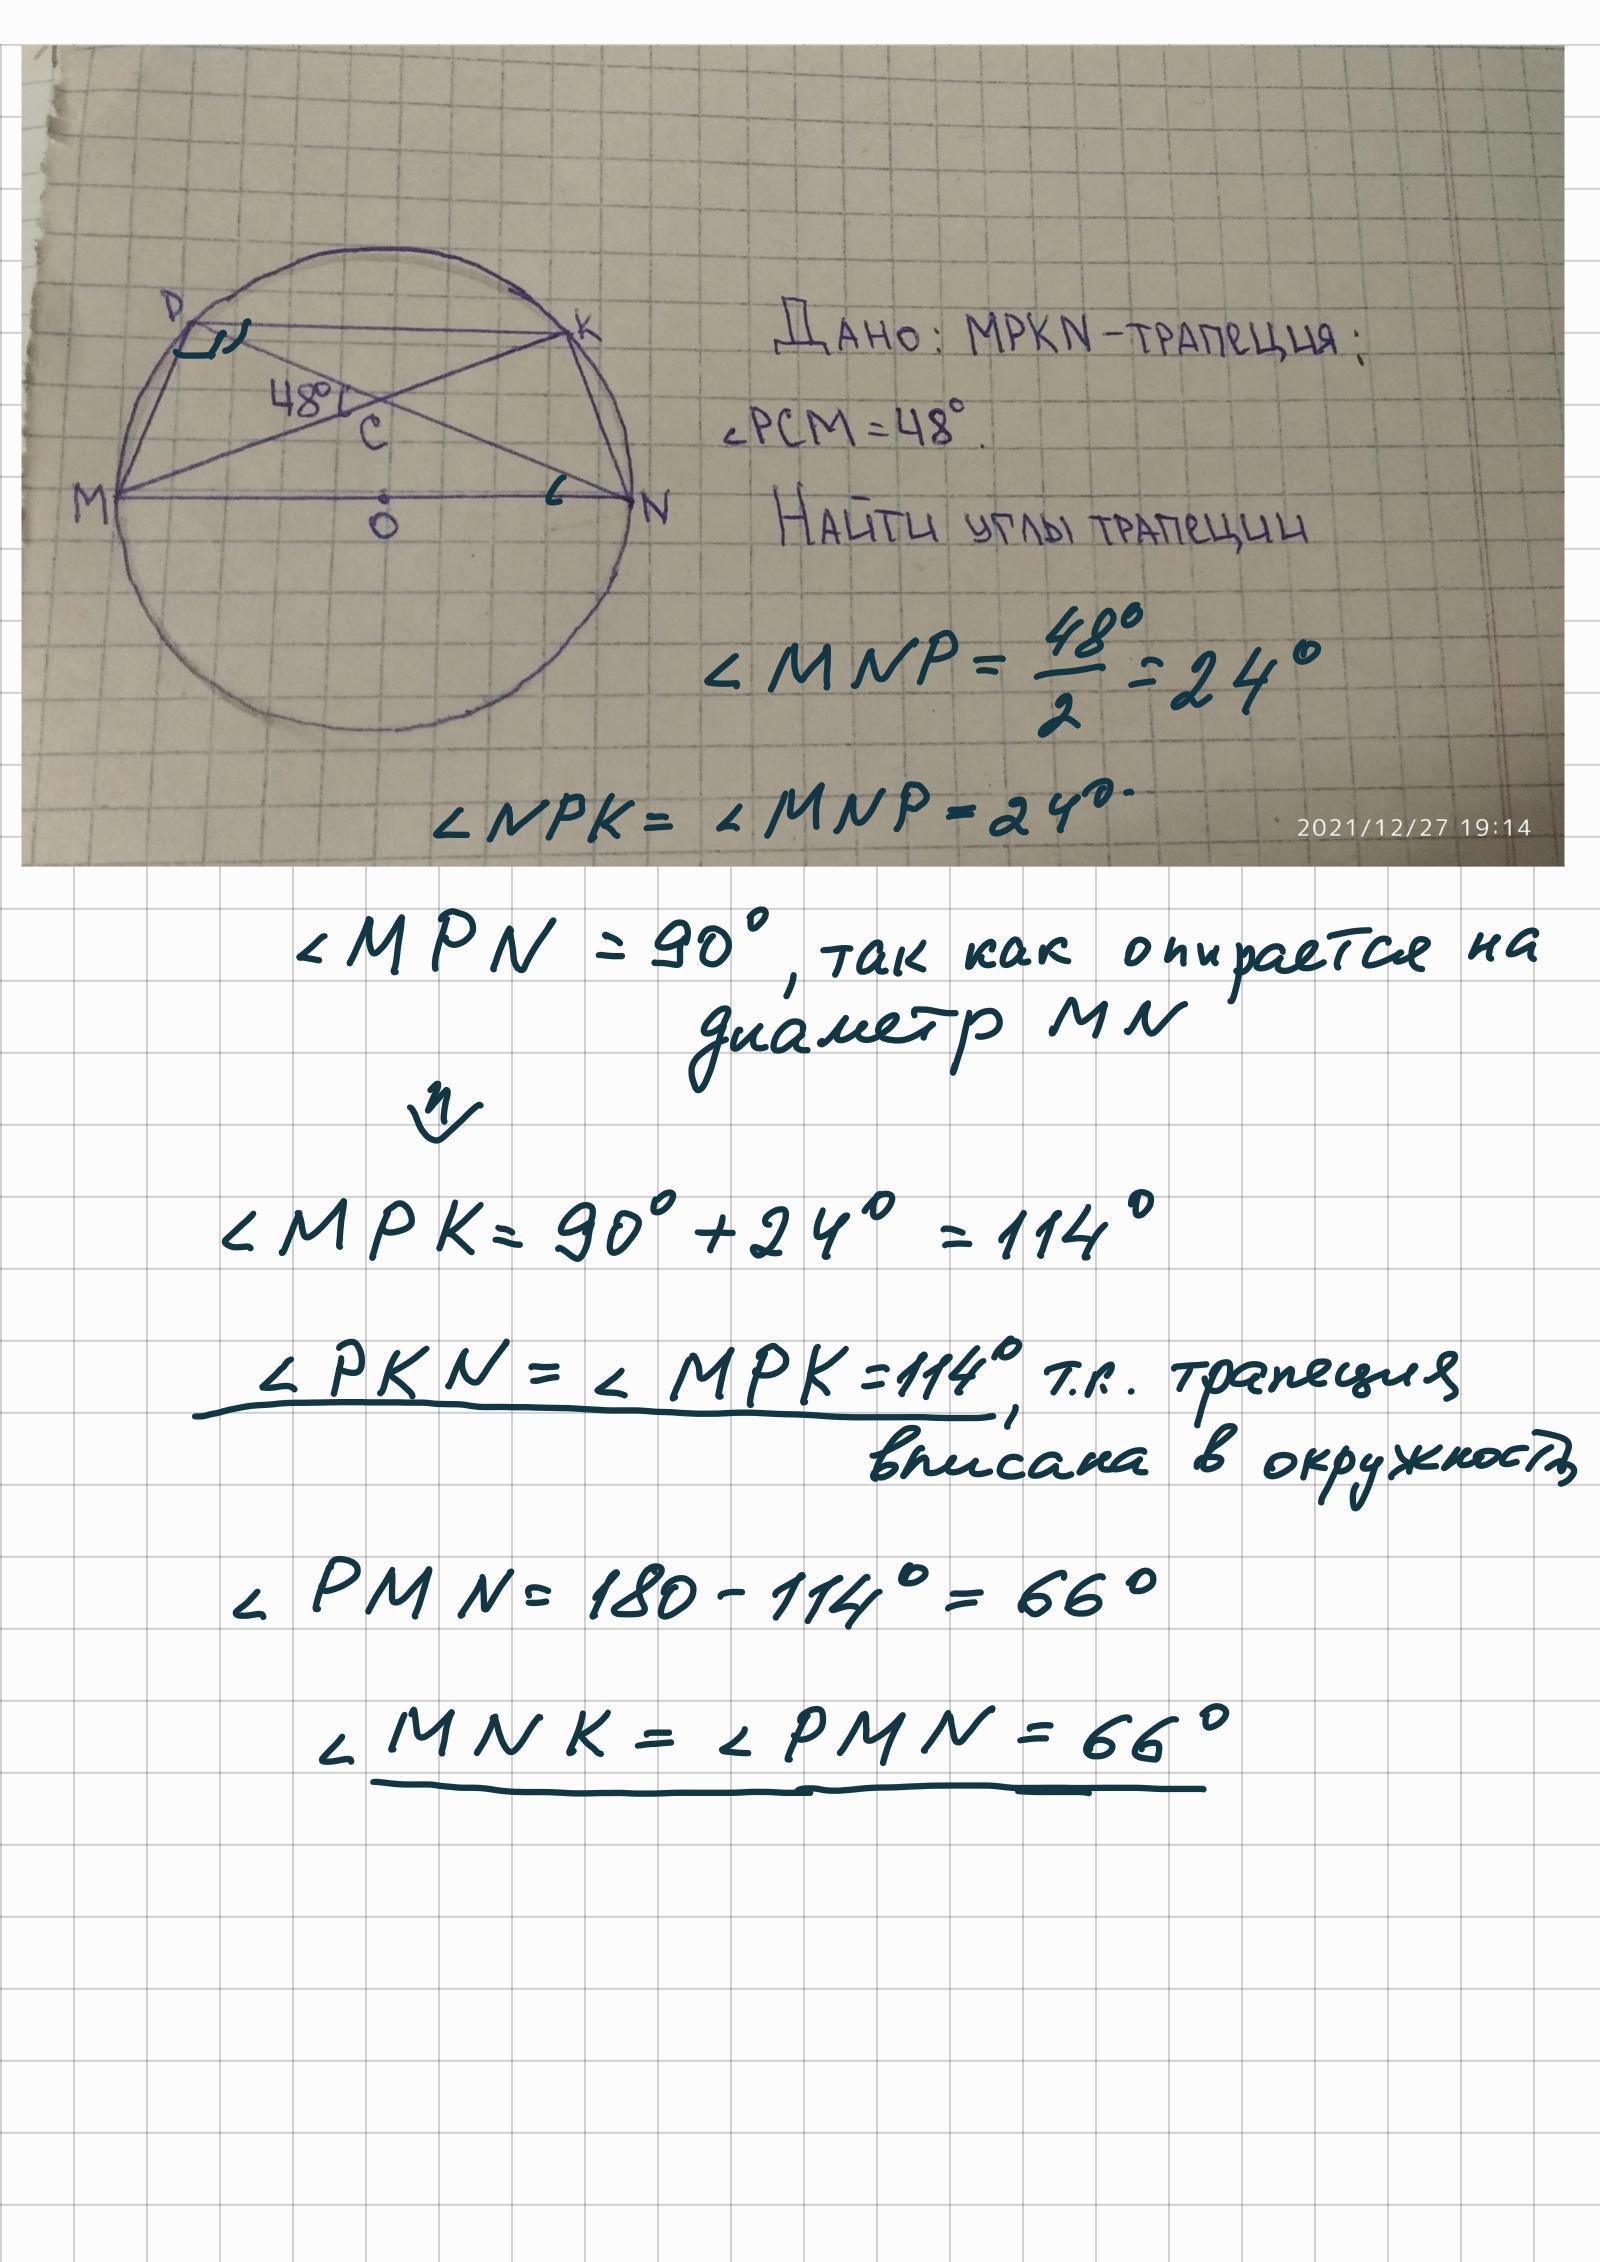 P K
48° C
M O N
Дано: MPKN-трапеция;
∠PCM=48°.
Найти углы трапеции
∠MNP = 48°/2 = 24°
∠NPK = ∠MNP = 24°.
2021/12/27 19:14
∠MPN = 90°, так как опирается на
диаметр MN
∠MPK = 90° + 24° = 114°
∠PKN = ∠MPK = 114°, т.к. трапеция
вписана в окружность
∠PMN = 180 - 114° = 66°
∠MNK = ∠PMN = 66°